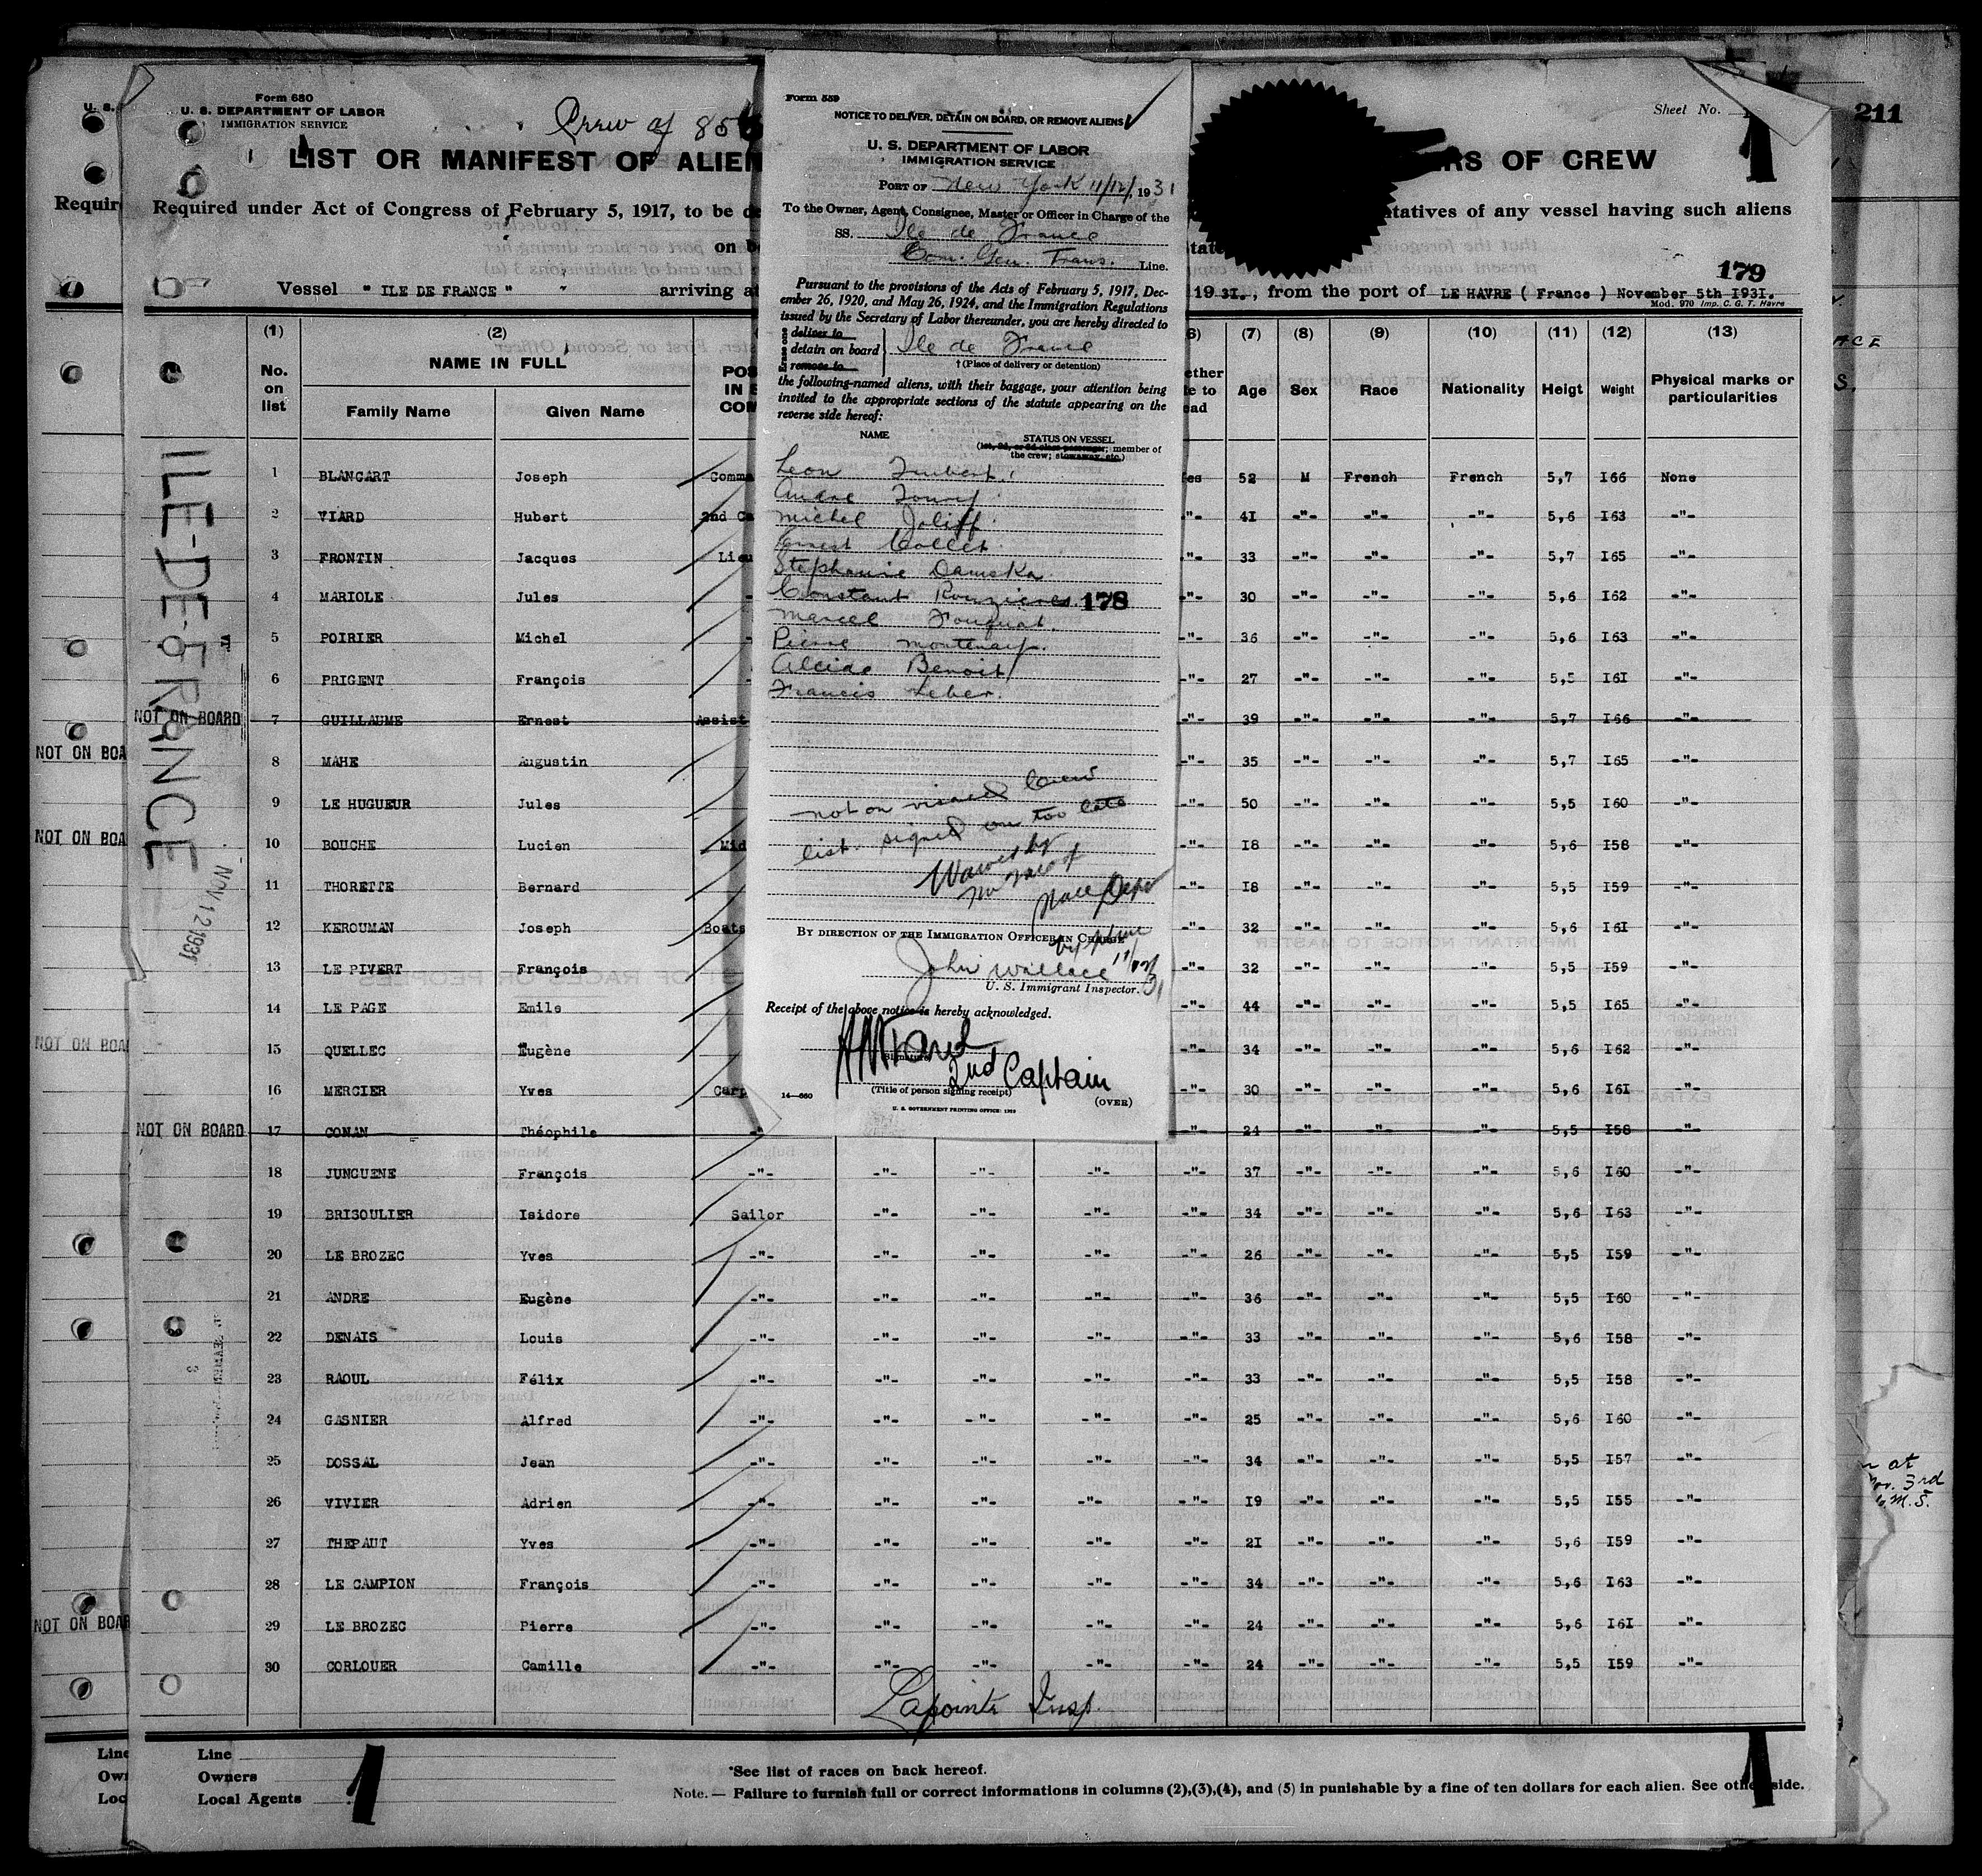 211
U. S.
Requir
NOT ON BOA
NOT ON BOA
NOT ON BOA
NOT ON BOAR
Line
Own
Loc
ACE
S.
n at
3rd
M.S.
Form 680
U. S. DEPARTMENT OF LABOR
IMMIGRATION SERVICE
Crew of 85
Sheet No. 1
LIST OR MANIFEST OF ALIEN
RS OF CREW
Required under Act of Congress of February 5, 1917, to be de
tatives of any vessel having such aliens
on b
tate
179
Vessel " ILE DE FRANCE " " arriving at
19 3I. , from the port of LE HAVRE ( France ) November 5th I93I.
Mod. 970 Imp. C. G. T. Havre
ILE-DE-FRANCE
NOV 12 1931
(1) (2) 6) (7) (8) (9) (10) (11) (12) (13)
No. on list NAME IN FULL Family Name Given Name POS IN S COM ether te to ead Age Sex Race Nationality Heigt Weight Physical marks or particularities
1 BLANCART Joseph Comma es 52 M French French 5,7 I66 None
2 VIARD Hubert 2nd Ca -"- 4I -"- -"- -"- 5,6 I63 -"-
3 FRONTIN Jacques Lieu -"- 33 -"- -"- -"- 5,7 I65 -"-
4 MARIOLE Jules -"- 30 -"- -"- -"- 5,6 I62 -"-
5 POIRIER Michel -"- 36 -"- -"- -"- 5,6 I63 -"-
6 PRIGENT François -"- 27 -"- -"- -"- 5,5 I6I -"-
NOT ON BOARD 7 GUILLAUME Ernest Assist -"- 39 -"- -"- -"- 5,7 I66 -"-
8 MAHE Augustin -"- 35 -"- -"- -"- 5,7 I65 -"-
9 LE HUGUEUR Jules -"- 50 -"- -"- -"- 5,5 I60 -"-
10 BOUCHE Lucien Mid -"- I8 -"- -"- -"- 5,6 I58 -"-
11 THORETTE Bernard -"- I8 -"- -"- -"- 5,5 I59 -"-
12 KEROUMAN Joseph Boats -"- 32 -"- -"- -"- 5,6 I6I -"-
13 LE PIVERT François -"- 32 -"- -"- -"- 5,5 I59 -"-
14 LE PAGE Emile -"- 44 -"- -"- -"- 5,5 I65 -"-
15 QUELLEC Eugène -"- 34 -"- -"- -"- 5,6 I62 -"-
16 MERCIER Yves Carp -"- 30 -"- -"- -"- 5,6 I6I -"-
NOT ON BOARD 17 CONAN Théophile -" -"- 24 -"- -"- -"- 5,5 I58 -"-
18 JUNGUENE François -"- -"- -"- -"- -"- 37 -"- -"- -"- 5,6 I60 -"-
19 BRISOULIER Isidore Sailor -"- -"- -"- -"- 34 -"- -"- -"- 5,6 I63 -"-
20 LE BROZEC Yves -"- -"- -"- -"- -"- 26 -"- -"- -"- 5,5 I59 -"-
21 ANDRE Eugène -"- -"- -"- -"- -"- 36 -"- -"- -"- 5,5 I60 -"-
22 DENAIS Louis -"- -"- -"- -"- -"- 33 -"- -"- -"- 5,6 I58 -"-
23 RAOUL Félix -"- -"- -"- -"- -"- 33 -"- -"- -"- 5,5 I58 -"-
24 GASNIER Alfred -"- -"- -"- -"- -"- 25 -"- -"- -"- 5,6 I60 -"-
25 DOSSAL Jean -"- -"- -"- -"- -"- 34 -"- -"- -"- 5,5 I57 -"-
26 VIVIER Adrien -"- -"- -"- -"- -"- I9 -"- -"- -"- 5,5 I55 -"-
27 THEPAUT Yves -"- -"- -"- -"- -"- 2I -"- -"- -"- 5,6 I59 -"-
28 LE CAMPION François -"- -"- -"- -"- -"- 34 -"- -"- -"- 5,6 I63 -"-
29 LE BROZEC Pierre -"- -"- -"- -"- -"- 24 -"- -"- -"- 5,6 I6I -"-
30 CORLOUER Camille -"- -"- -"- -"- -"- 24 -"- -"- -"- 5,5 I59 -"-
Lapointe Insp.
Line
Owners
Local Agents
1
1
*See list of races on back hereof.
Note. — Failure to furnish full or correct informations in columns (2),(3),(4), and (5) in punishable by a fine of ten dollars for each alien. See other side.
Form 559
NOTICE TO DELIVER, DETAIN ON BOARD, OR REMOVE ALIENS
U. S. DEPARTMENT OF LABOR
IMMIGRATION SERVICE
PORT OF New York 11/12/, 1931
To the Owner, Agent, Consignee, Master or Officer in Charge of the
SS. Ile de France
Com. Gen. Trans. Line.
Pursuant to the provisions of the Acts of February 5, 1917, Dec-
ember 26, 1920, and May 26, 1924, and the Immigration Regulations
issued by the Secretary of Labor thereunder, you are hereby directed to
Erase one
deliver to
detain on board Ile de France
remove to
† (Place of delivery or detention)
the following-named aliens, with their baggage, your attention being
invited to the appropriate sections of the statute appearing on the
reverse side hereof:
NAME STATUS ON VESSEL
(1st, 2d, or 3d class passenger; member of
the crew; stowaway, etc.)
Leon Imbert.
Andre Foury
Michel Joliff.
Ernest Collet.
Stephanie Damska.
Constant Rouzieres. 178
Marcel Fouquat.
Pierre Montenay.
Alcide Benoit
Francis Leber.
not on visaed Crew
list. signed on too late
Waived by
BY DIRECTION OF THE IMMIGRATION OFFICER IN CHARGE
John Wallace
U. S. Immigrant Inspector.
Receipt of the above notice is hereby acknowledged.
(Signature)
2nd Captain
(Title of person signing receipt)
14—660
(OVER)
U. S. GOVERNMENT PRINTING OFFICE: